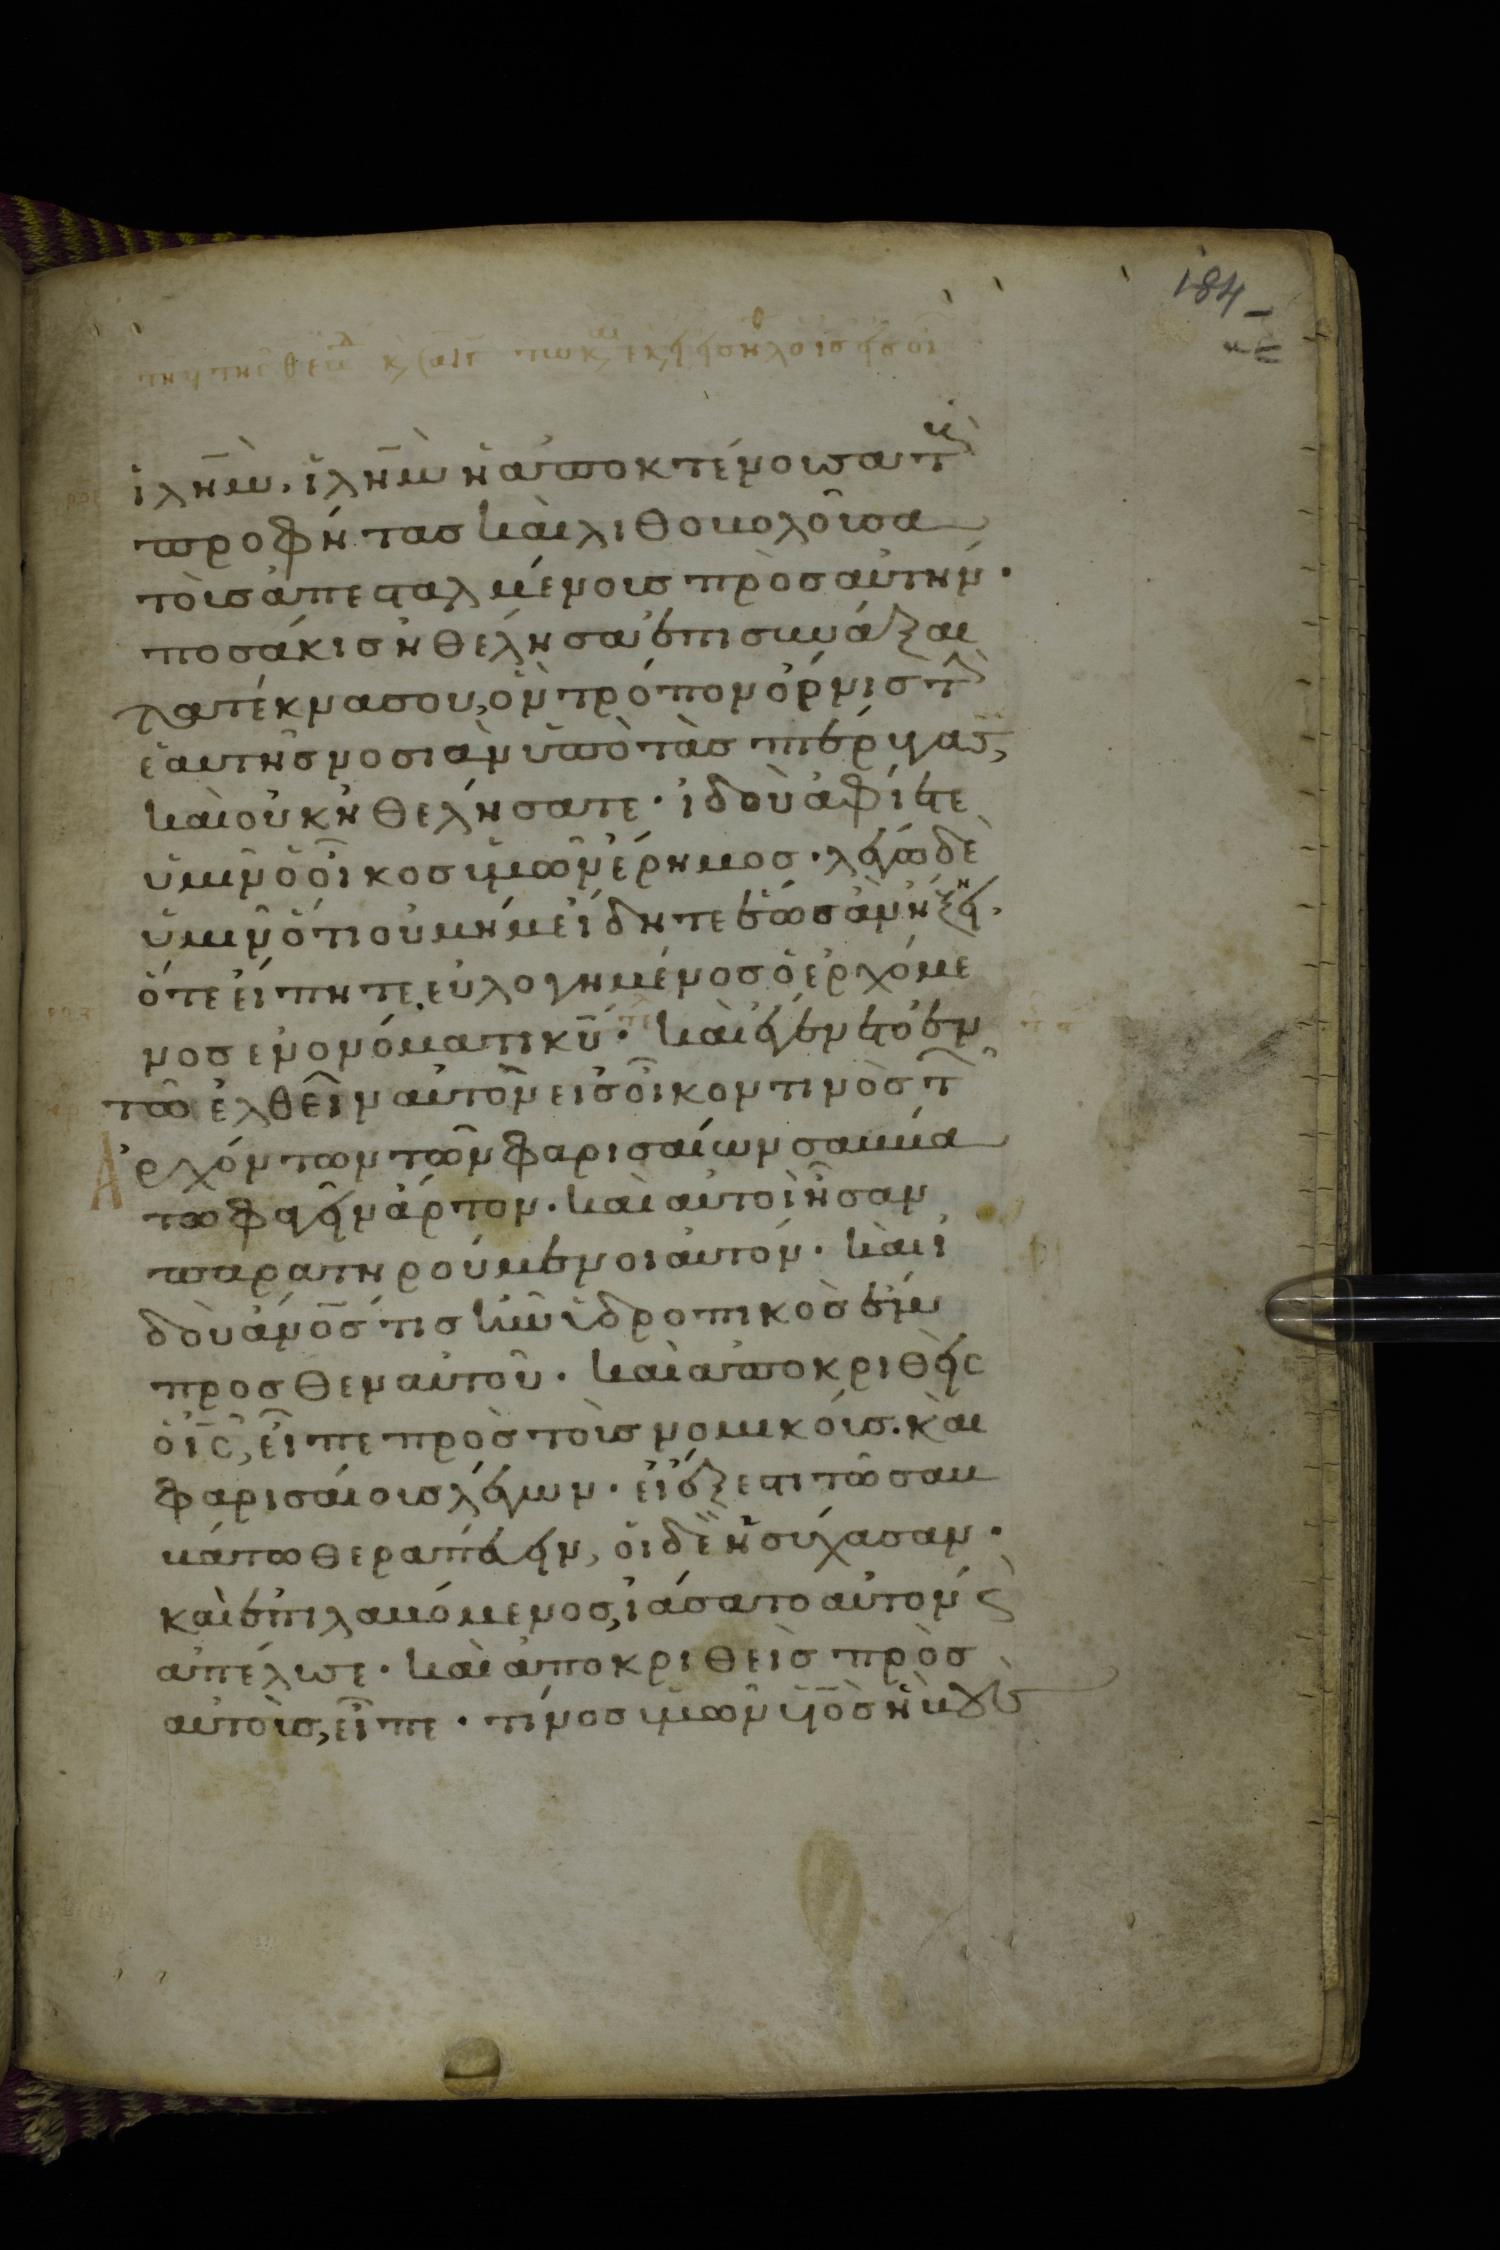 184
ἱλημ̄. ἱλημ̄ ἡ ἀποκτένουσα τοὺς
προφήτας καὶ λιθοβολοῦσα
τοὺς ἀπεσταλμένους πρὸς αὐτήν·
ποσάκις ἠθέλησα ἐπισυνάξαι
τὰ τέκνα σου, ὃν τρόπον ὄρνις τὴν
ἑαυτῆς νοσιὰν ὑπὸ τὰς πτέρυγας,
καὶ οὐκ ἠθελήσατε· ἰδοὺ ἀφίεται
ὑμῖν ὁ οἶκος ὑμῶν ἔρημος· λέγω δὲ
ὑμῖν ὅτι οὐ μή με ἴδητε ἕως ἂν ἥξῃ,
ὅτε εἴπητε, εὐλογημένος ὁ ἐρχόμε
νος ἐν ὀνόματι κῡ· καὶ ἐγένετο ἐν
τῶ ἐλθεῖν αὐτὸν εἰς οἶκον τινὸς τῶν
ἀρχόντων τῶν φαρισαίων σαββά
τω φαγεῖν ἄρτον· καὶ αὐτοὶ ἦσαν
παρατηρούμενοι αὐτόν· καὶ ἰ
δοὺ ἄνος̄ τις ἦν ὑδροπικὸς ἔμ
προσθεν αὐτοῦ· καὶ ἀποκριθεὶς
ὁ ις̄, εἶπε πρὸς τοὺς νομικούς. καὶ
φαρισαίους λέγων· εἰ ἔξεστι τῶ σαβ
βάτω θεραπεύειν, οἱ δὲ ἡσύχασαν·
καὶ ἐπιλαβόμενος, ἰάσατο αὐτὸν ϗ
ἀπέλυσε· καὶ ἀποκριθεὶς πρὸς
αὐτοὺς, εἶπε· τίνος ὑμῶν υἱὸς ἢ βοῦς